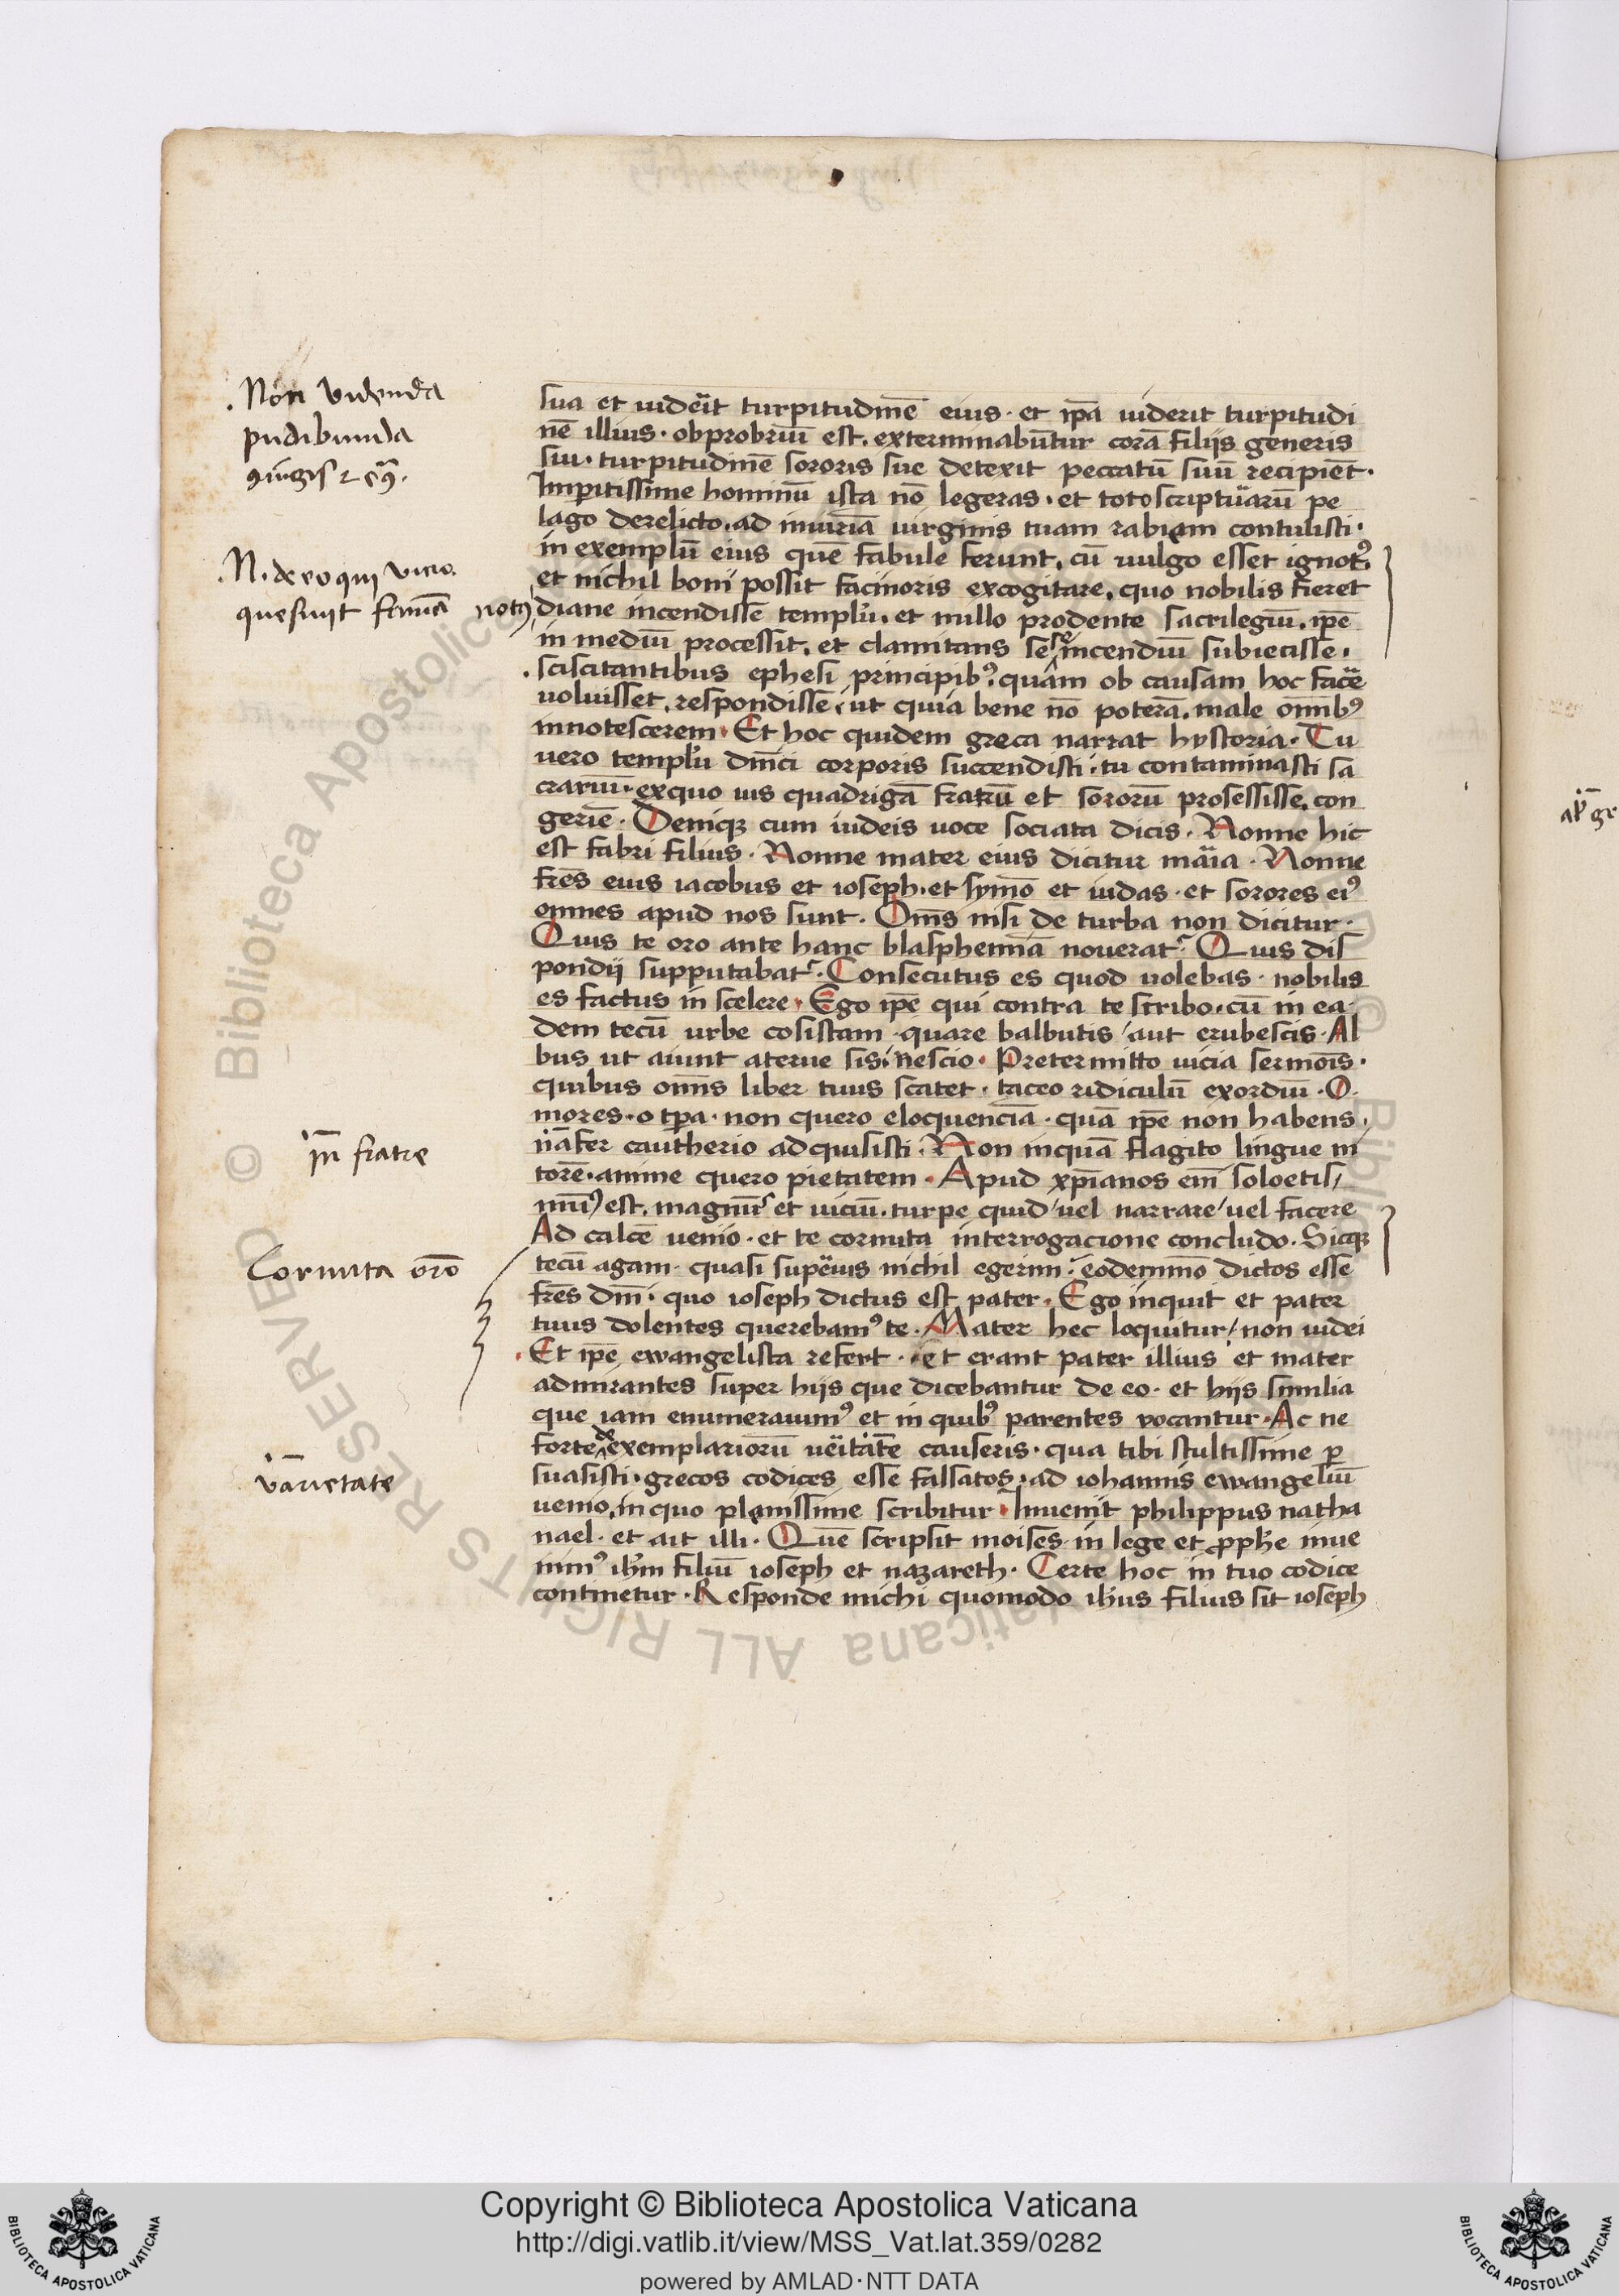 .Non videnda
pudibunda
sua et uidẽit turpitudinẽ eius · et ip̃a uiderit turpitudi
nẽ illius · obprobriũ est, exterminabũtur corã filijs generis
sui · turpitudinẽ sororis sue detexit peccatũ suũ recipiẽt ·
Imperitissime hominũ ista nõ legeras · et toto scriptũarũ pe
lago derelicto, ad iniuriã uirginis tuam rabiem contulisti ·
.N. de eo qui vicio
quesiuit famã notꝰ
in exemplũ eius quẽ fabule ferunt, cũ uulgo esset ignotꝰ,
et nichil boni possit facinoris excogitare, quo nobilis fieret
diane incendisse templũ, et nullo prodente sacrilegiũ, ip̃e
in mediũ processit, et clamitans sese incendiũ subiecisse,
. sciscitantibus ephesi principibꝰ, quam ob causam hoc facẽ
uoluisset, respondisse, ut quia bene nõ poterã, male om̃ibꝰ
innotescerem · Et hoc quidem greca narrat hystoria · Tu
uero templũ dñici corporis succendisti, tu contaminasti sa
crariũ · exquo uis quadrigã fratrũ et sororũ processisse, con
geriẽ · Deniqꝫ cum iudeis uoce sociata dicis · Nonne hic
est fabri filius · Nonne mater eius dicitur maria · Nonne
fr̃es eius iacobus et ioseph, et symõ et iudas · et sorores eiꝰ
omnes apud nos sunt · Om̃s nisi de turba non dicitur ·
Quis te oro ante hanc blasphemiã nouerat? Quis dis
pondij supputabat? · Consecutus es quod uolebas · nobilis
es factus in scelere · Ego ip̃e qui contra te scribo, cũ in ea
dem tecũ urbe cõsistam · quare balbutis / aut erubescis · Al
bus ut aiunt aterue sis, nescio · Pretermitto uicia sermõis ·
quibus om̃s liber tuus scatet · taceo ridiculũ exordiũ · O
mores · o tp̃a · non quero eloquenciã · quã ip̃e non habens,
in fratre
cautherio adquisisti · Non inquã flagito lingue ni
torẽ · anime quero pietatem · Apud xp̃ianos em̃ soloetis/
mꝰ est, magnꝰ et uiciũ, turpe quid / uel narrare / uel facere
Cornuta orõ
Ad calcẽ uenio · et te cornuta interrogacione concludo · Sicqꝫ
tecũ agam · quasi supẽius nichil egerim · eodemmõ dictos esse
fr̃es dñi · quo ioseph dictus est pater · Ego inquit et pater
tuus dolentes querebamꝰ te · Mater hec loquitur / non iudei
· Et ip̃e ewangelista refert · et erant pater illius et mater
admirantes super hijs que dicebantur de eo · et hijs similia
que iam enumerauimꝰ et in quibꝰ parentes vocantur · Ac ne
varietate
forte de exemplariorũ ueritate causeris · qua tibi stultissime ꝑ
suasisti · grecos codices esse falsatos, ad iohannis ewangeliũ
uenio, in quo planissime scribitur · Inuenit philippus natha
nael · et ait illi · Quẽ scripsit moises in lege et prophe inue
nimꝰ ihm̃ filiũ ioseph et nazareth · Certe hoc in tuo codice
continetur · Responde michi quomodo ih̃us filius sit ioseph
© Biblioteca Apostolica Vaticana ALL RIGHTS RESERVED
Copyright © Biblioteca Apostolica Vaticana
http://digi.vatlib.it/view/MSS_Vat.lat.359/0282
powered by AMLAD·NTT DATA
BIBLIOTECA APOSTOLICA VATICANA
BIBLIOTECA APOSTOLICA VATICANA